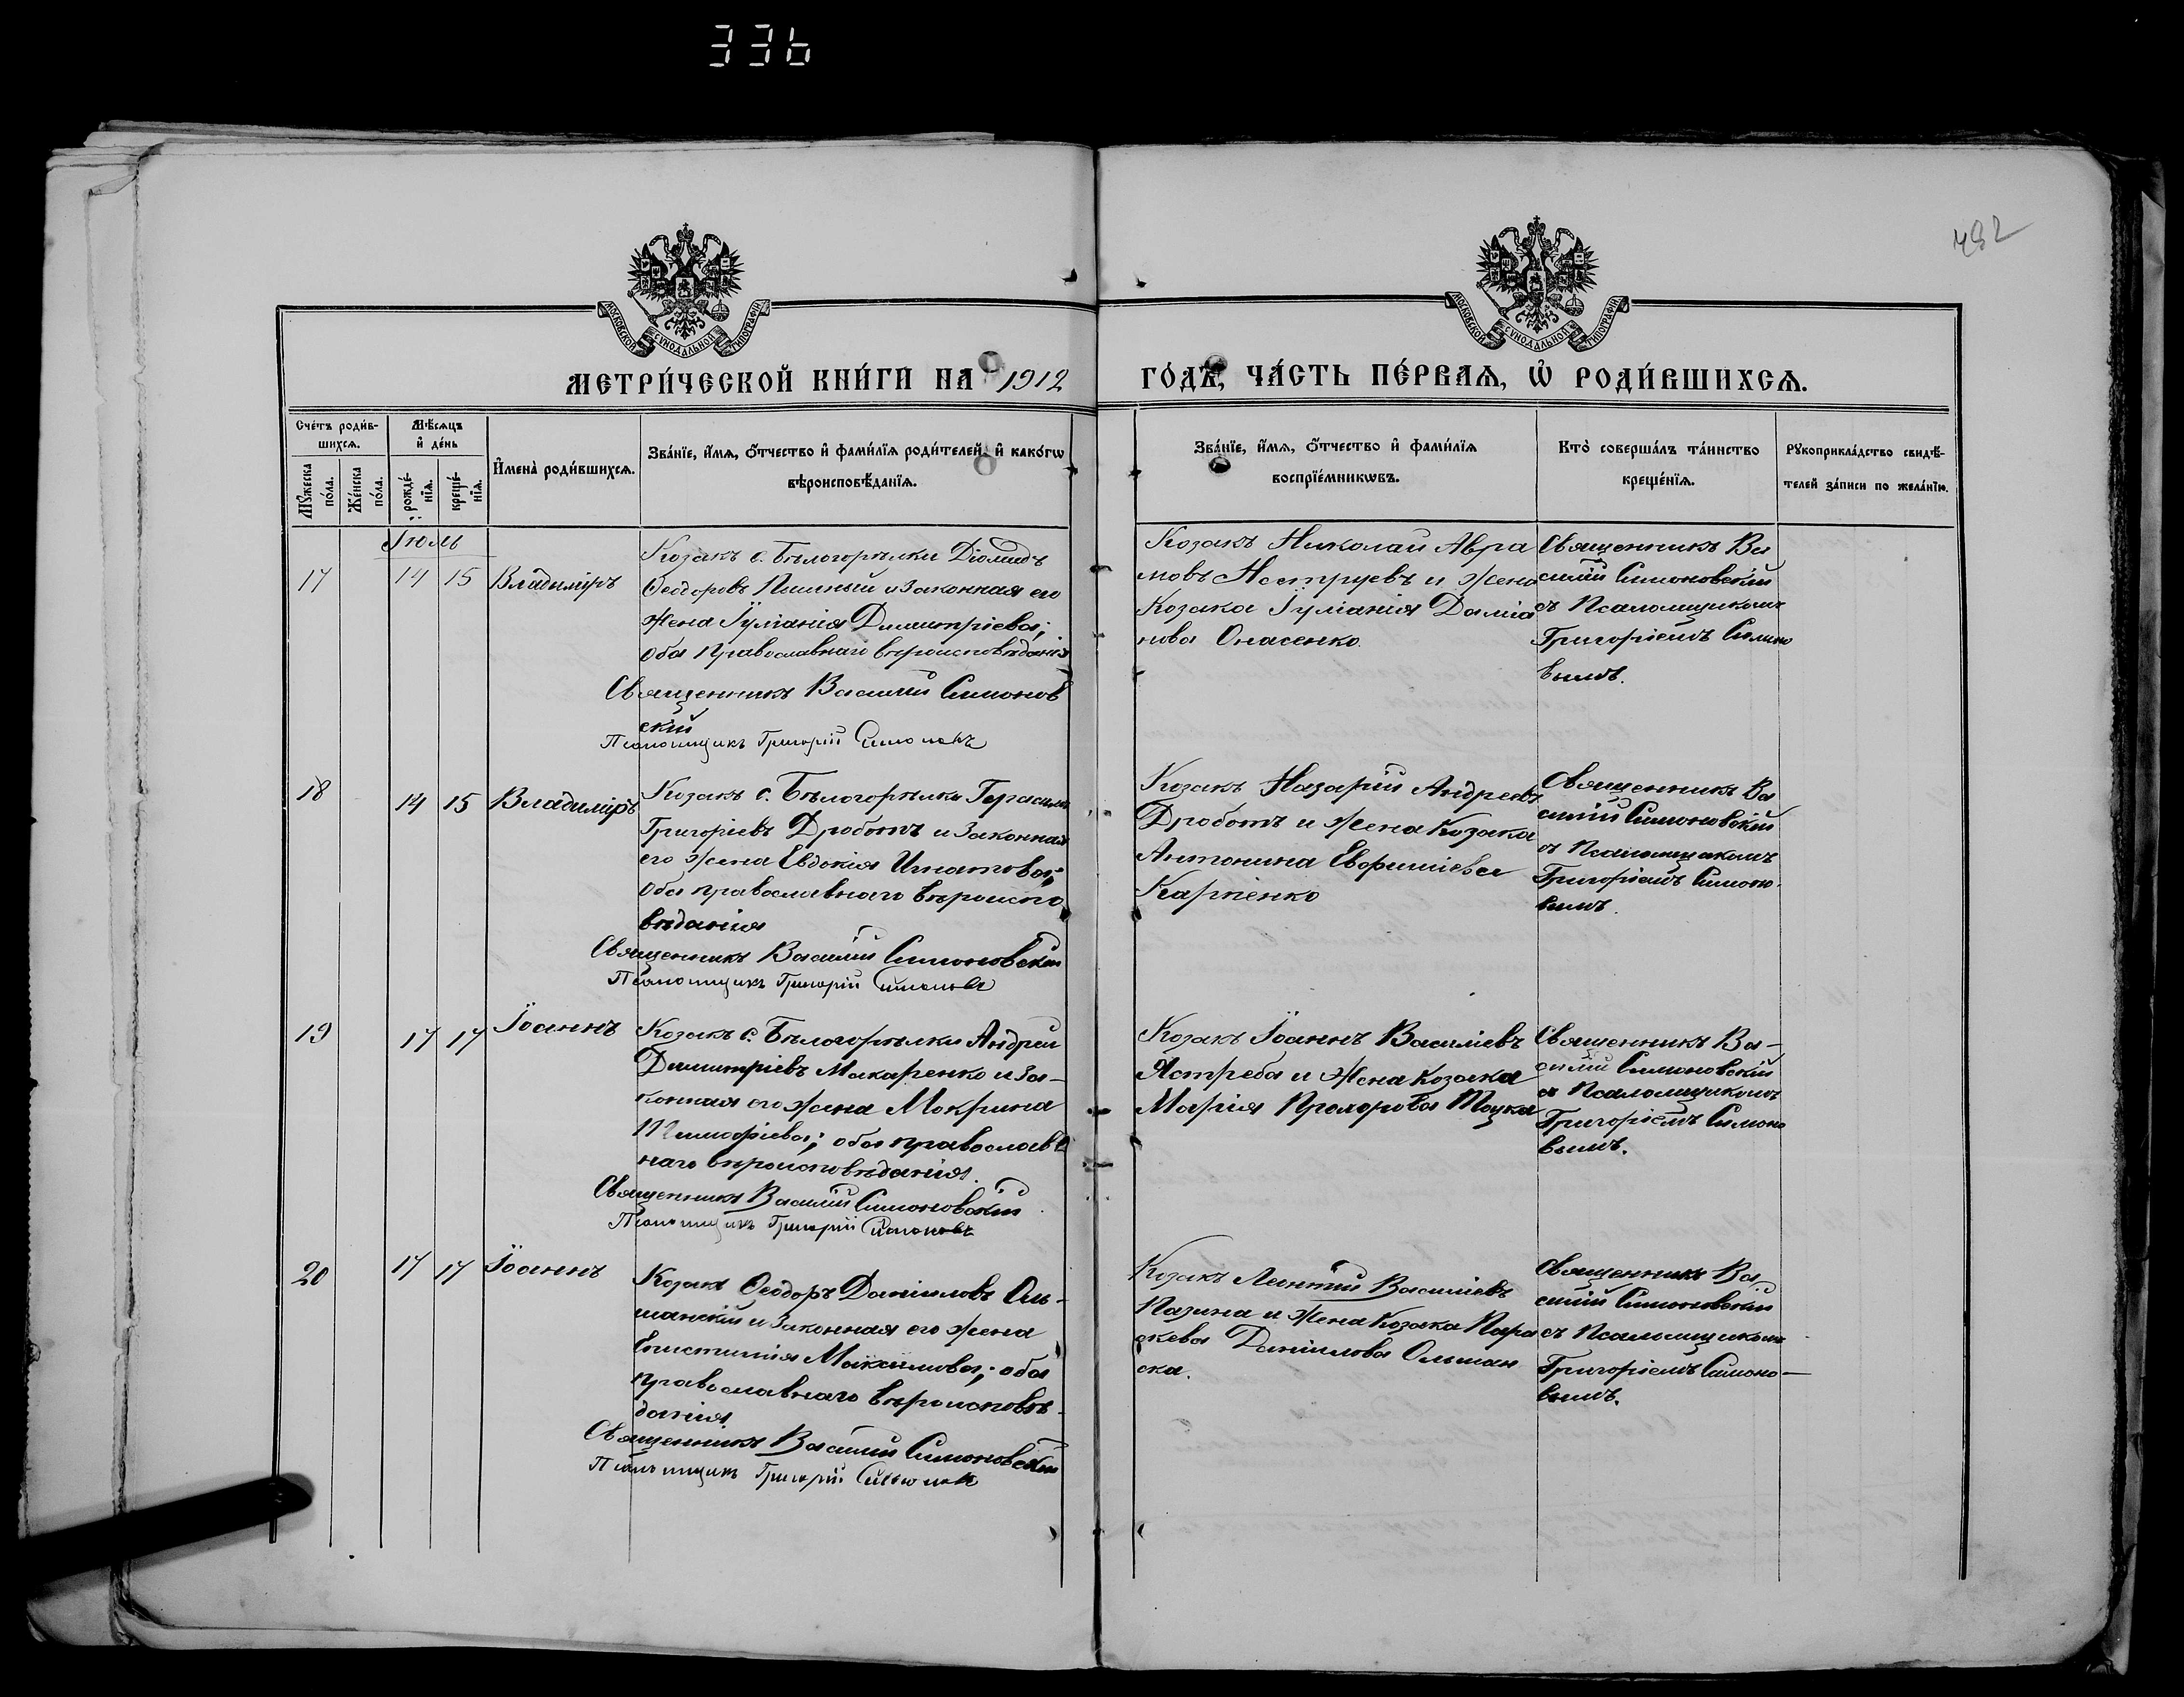 336
492
МОСКОВСКОЙ СУНОДАЛЬНОЙ ТИПОГРАФІИ
МОСКОВСКОЙ СУНОДАЛЬНОЙ ТИПОГРАФІИ
МЕТРИ́ЧЕСКОЙ КНИ́ГИ НА 1912
ГО́ДЪ, ЧА́СТЬ ПЕ́РВАѦ, Ѡ РОДИ́ВШИХСѦ.
Сче́тъ роди́в-
шихсѧ.
Мꙋ́жеска
по́ла.
Же́нска
по́ла.
Мѣ́сѧцъ
и҆ де́нь
рожде́-
нїѧ.
креще́-
нїѧ.
И҆мена̀ роди́вшихсѧ.
Зва́нїе, и҆́мѧ, ѻ҆́тчество и҆ фами́лїѧ роди́телей, и҆ како́гѡ
вѣроисповѣ́данїѧ.
Зва́нїе, и҆́мѧ, ѻ҆́тчество и҆ фами́лїѧ
воспрїе́мникѡвъ.
Кто̀ соверша́лъ та́инство
креще́нїѧ.
Рꙋкоприкла́дство свидѣ́-
телей за́писи по жела́нїю.
Іюль
17
14 15
Владиміръ
Козакъ с. Бѣлогорѣлки Діомидъ
Ѳеодоровъ Пашный и законная его
жена Іуліанія Димитріева;
оба православнаго вѣроисповѣданія
Священникъ Василій Симонов
скій
Псаломщикъ Григорій Симоновъ
Козакъ Николай Авра
мовъ и жена
Козака Іуліанія Даміа
нова Онасенко.
Священникъ Ва
силій Симоновскій
съ Псаломщикомъ
Григоріемъ Симоно
вымъ.
18
14 15
Владиміръ
Козакъ с. Бѣлогорѣлки Герасимъ
Григоріевъ Дроботъ и законная
его жена Евдокія Игнатова;
оба православнаго вѣроиспо
вѣданія
Священникъ Василій Симоновскій
Псаломщикъ Григорій Симоновъ
Козакъ Назарій Андреевъ
Дроботъ и жена Козака
Антонина Евфиміева
Карпенко
Священникъ Ва
силій Симоновскій
съ Псаломщикомъ
Григоріемъ Симоно-
вымъ.
19
17 17
Іоаннъ
Козакъ с. Бѣлогорѣлки Андрей
Димитріевъ Макаренко и за-
конная его жена Мокрина
Тимофіева; оба православ
наго вѣроисповѣданія.
Священникъ Василій Симоновскій
Псаломщикъ Григорій Симоновъ
Козакъ Іоаннъ Василіевъ
Ястреба и жена Козака
Марія Прохорова Тоцка
Священникъ Ва-
силій Симоновскій
съ Псаломщикомъ
Григоріемъ Симоно
вымъ.
20
17 17
Іоаннъ
Козакъ Ѳеодоръ Даніиловъ Оль-
шанскій и законная его жена
Епистимія Максимова; оба
православнаго вѣроисповѣ-
данія.
Священникъ Василій Симоновскій
Псаломщикъ Григорій Симоновъ
Козакъ Леонтій Василіевъ
Пазина и жена Козака Пара
скева Даніилова Ольшан
ска.
Священникъ Ва
силій Симоновскій
съ Псаломщикомъ
Григоріемъ Симоно-
вымъ.